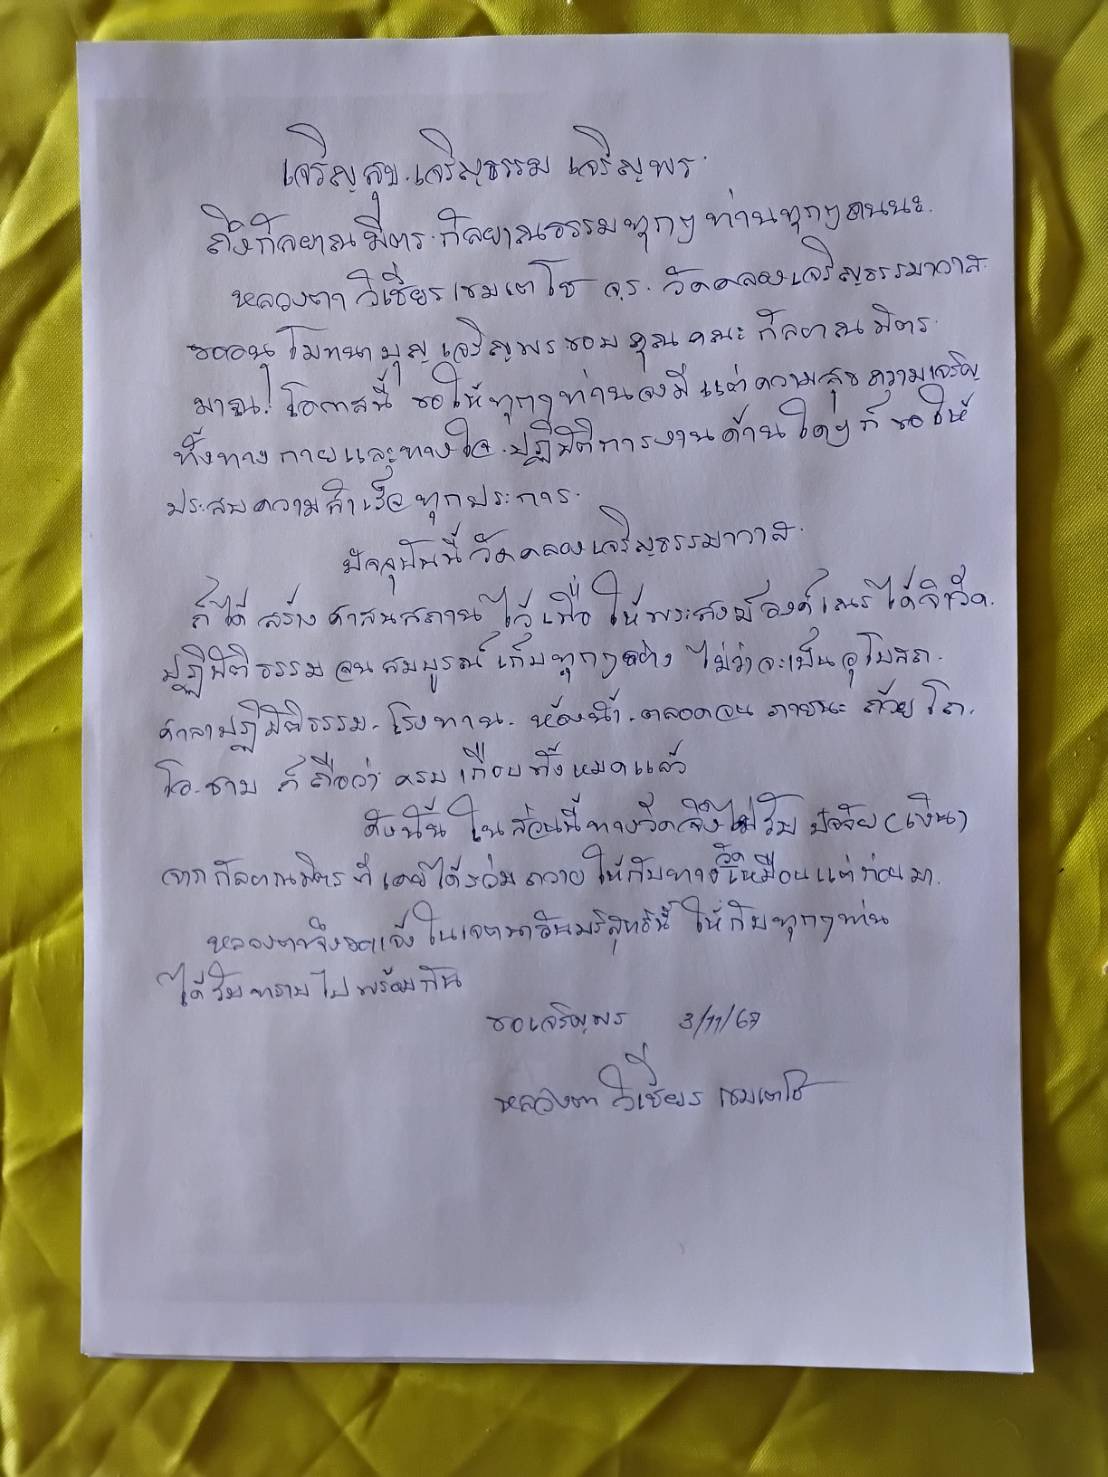 เจริญสุข.เจริญธรรม เจริญพร.
ถึงกัลยาณมิตร.กัลยาณธรรมทุกๆท่านทุกๆคนนะ.
หลวงตา วิเชียร เขมเตโช จร. วัดคลองเจริญธรรมาวาส.
ขออนุโมทนาบุญ เจริญพรขอบคุณคณะกัลยาณมิตร.
มาณ.โอกาสนี้ ขอให้ทุกๆท่านจงมีแต่ความสุขความเจริญ
ทั้งทางกายและทางใจ.ปฏิบัติการงานด้านใดๆก็ขอให้
ประสบความสำเร็จทุกประการ.
ปัจจุบันนี้วัดคลองเจริญธรรมาวาส.
ก็ได้สร้างศาสนสถานไว้เพื่อให้พระสงฆ์องค์เณรได้จำวัด.
ปฏิบัติธรรมจนสมบูรณ์เกือบทุกๆอย่าง ไม่ว่าจะเป็นอุโบสถ.
ศาลาปฏิบัติธรรม.โรงทาน.ห้องน้ำ.ตลอดจนภาชนะ ถ้วย โถ.
โอ.ชาม ก็ถือว่าครบเกือบทั้งหมดแล้ว
ดังนั้น ในส่วนนี้ทางวัดจึงไม่รับ ปัจจัย(เงิน)
จากกัลยาณมิตรที่เคยได้ร่วมถวายให้กับทางวัดเหมือนแต่ก่อนมา.
หลวงตาจึงขอแจ้งในเจตนาอันบริสุทธิ์นี้ ให้กับทุกๆท่าน
ได้รับทราบไปพร้อมกัน
ขอเจริญพร 3/11/67
หลวงตา วิเชียร เขมเตโช